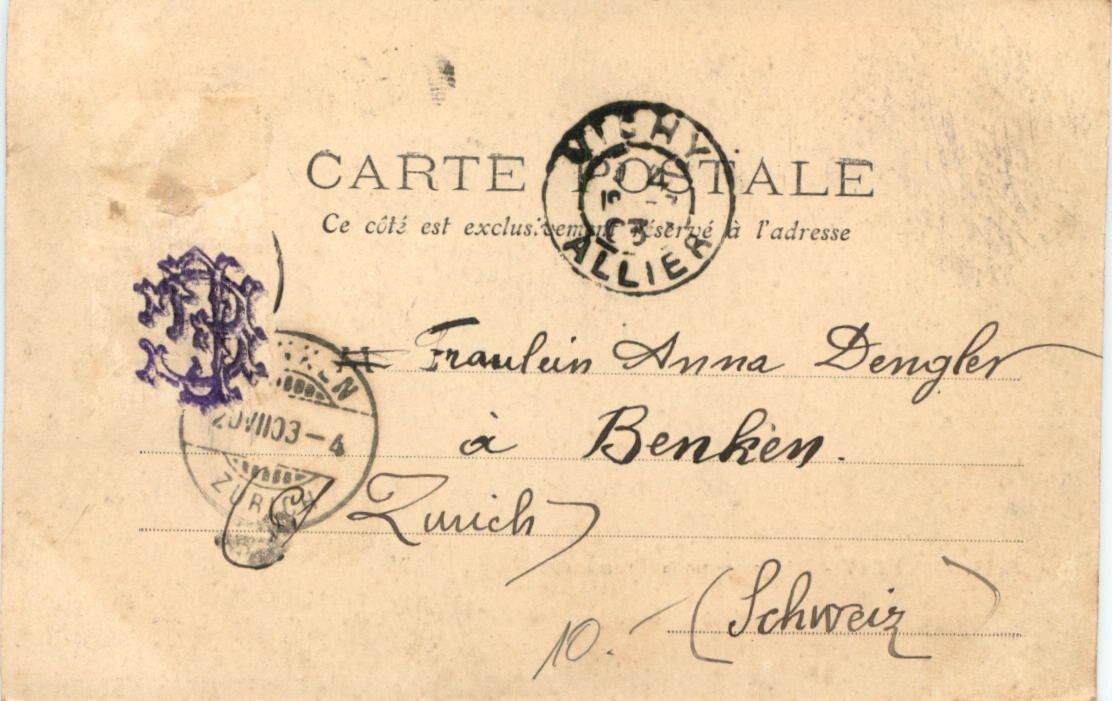 CARTE POSTALE
Ce côté est exclusivement réservé à l'adresse
VICHY
03
ALLIER
Fraulein Anna Dengler
à Benken.
20 VII 03 – 4
ZÜRICH
Zurich
(Schweiz)
10.